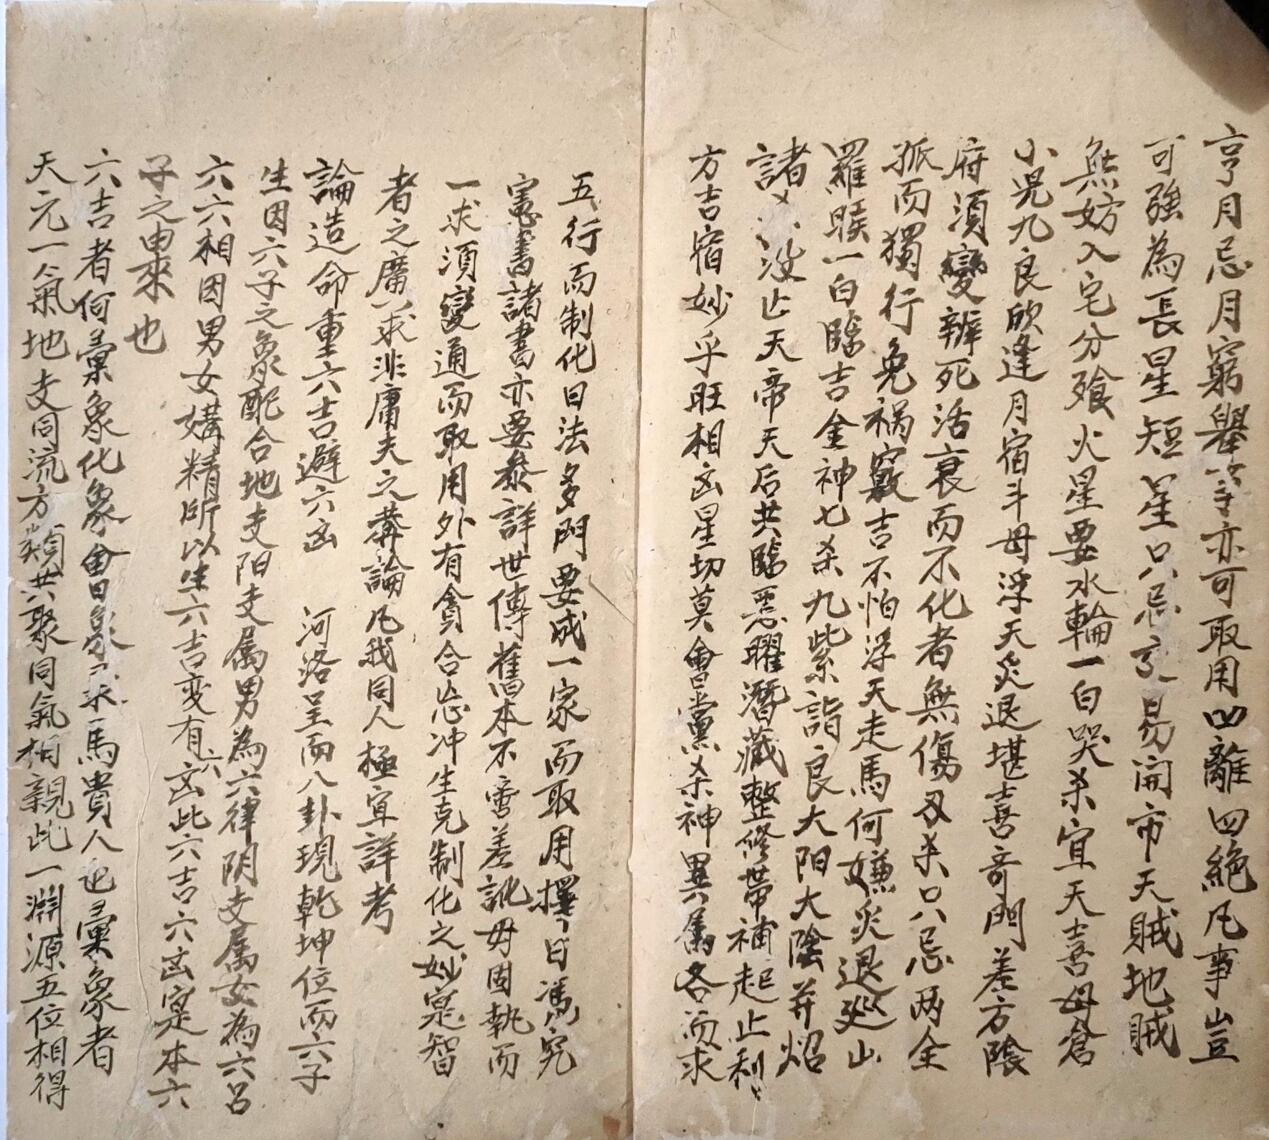 亨月忌月窮舉等亦可取用四離四絕凡事豈
可強為長星短星只忌交易開市天賊地賊
無妨入宅分飱火星要水輪一白哭杀宜天喜母倉
小児九良欣逢月宿斗母浮天灾退堪喜奇門差方陰
府須變辨死活衰而不化者無傷刃杀只忌两全
孤而獨行免禍竅吉不怕浮天走馬何嫌灾退廵山
羅睺一白臨吉金神七杀九紫詣良大阳大陰并炤
諸㐫没亾天帝天后共臨惡曜潛藏整修帶補起止利
方吉宿妙乎旺相凶星切莫會黨杀神異屬各而求
五行而制化日法多門要成一家而取用擇日馮究
憲書諸書亦要叅詳世傳舊本不啻差訛毋固執而
一求須變通而取用外有貪合忘冲生克制化之妙寔智
者之廣求非庸夫之講論凡我同人極宜詳考
論造命重六吉避六凶 河洛呈而八卦現乾坤位而六子
生因六子之象配合地支阳支属男為六律阴支属女為六呂
六六相因男女媾精所以生六吉変有六凶此六吉六凶寔本六
子之由來也
六吉者何彙象化象會象馬貴人也彙象者
天元一氣地支同流方類共聚同氣相親此一淵源五位相得